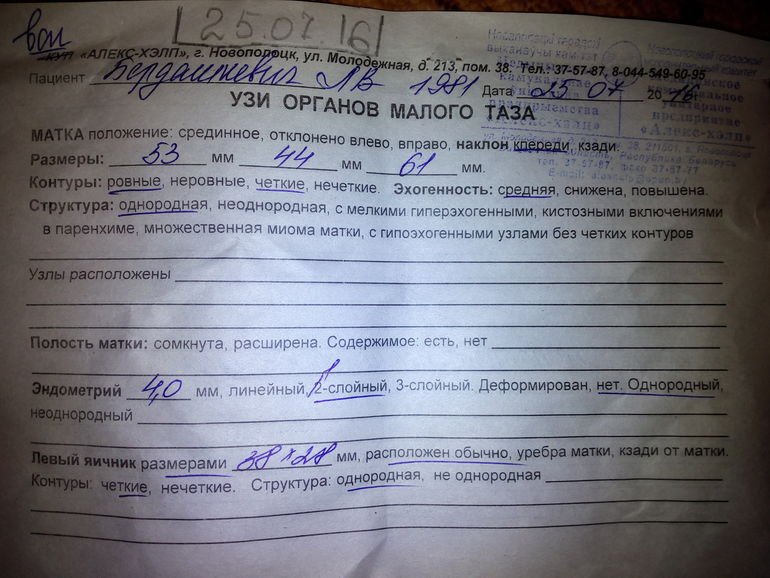 25.07.16
КУП «АЛЕКС-ХЭЛП», г. Новополоцк, ул. Молодежная, д. 213, пом. 38. Тел.: 37-57-87, 8-044-549-60-95
Пациент Бердашкевич ЛВ 1981 Дата 25 07 2016 г
УЗИ ОРГАНОВ МАЛОГО ТАЗА
МАТКА положение: срединное, отклонено влево, вправо, наклон кпереди, кзади.
Размеры: 53 мм 44 мм 61 мм.
Контуры: ровные, неровные, четкие, нечеткие. Эхогенность: средняя, снижена, повышена.
Структура: однородная, неоднородная, с мелкими гиперэхогенными, кистозными включениями
в паренхиме, множественная миома матки, с гипоэхогенными узлами без четких контуров
Узлы расположены
Полость матки: сомкнута, расширена. Содержимое: есть, нет
Эндометрий 4,0 мм, линейный, 2-слойный, 3-слойный. Деформирован, нет. Однородный,
неоднородный
Левый яичник размерами 38 х 28 мм, расположен обычно, уребра матки, кзади от матки.
Контуры: четкие, нечеткие. Структура: однородная, не однородная